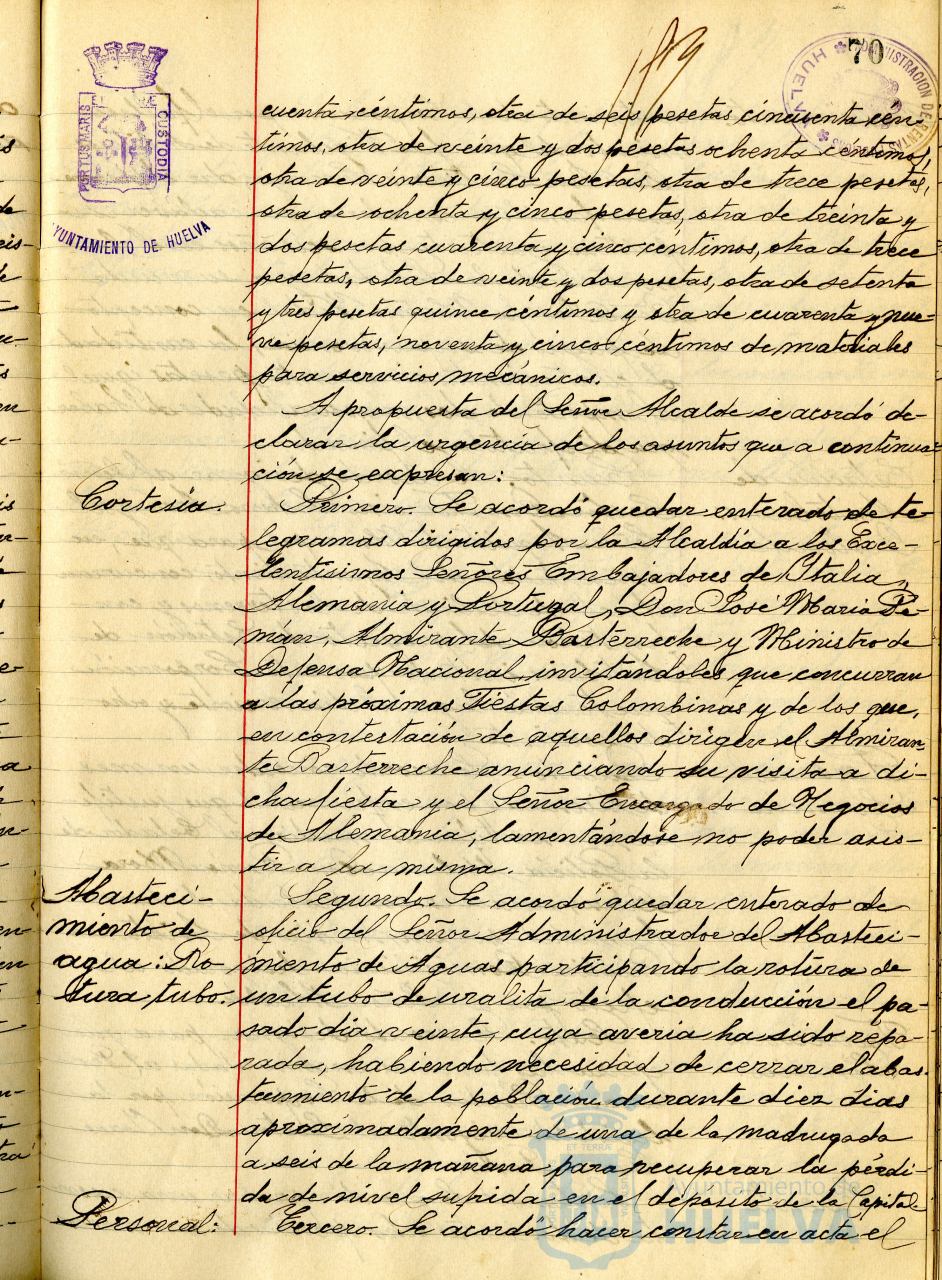 70
PORTUS MARIS
CUSTODIA
AYUNTAMIENTO DE HUELVA
ADMINISTRACION DE RENTAS
HUELVA
cuenta céntimos, otra de seis pesetas cincuenta cén-
timos, otra de veinte y dos pesetas ochenta céntimos,
otra de veinte y cinco pesetas, otra de trece pesetas,
otra de ochenta y cinco pesetas, otra de treinta y
dos pesetas cuarenta y cinco céntimos, otra de trece
pesetas, otra de veinte y dos pesetas, otra de setenta
y tres pesetas quince céntimos y otra de cuarenta y nue-
ve pesetas, noventa y cinco céntimos de materiales
para servicios mecánicos.
A propuesta del Señor Alcalde se acordó de-
clarar la urgencia de los asuntos que a continua-
ción se expresan:
Cortesía.
Primero. Se acordó quedar enterado de te-
legramas dirigidos por la Alcaldía a los Exce-
lentísimos Señores Embajadores de Italia,
Alemania y Portugal, Don José Maria Pe-
mán, Almirante Basterreche y Ministro de
Defensa Nacional, invitándoles que concurran
a las próximas Fiestas Colombinas y de los que,
en contestación de aquellos dirigen el Almiran
te Basterreche anunciando su visita a di-
cha fiesta y el Señor Encargado de Negocios
de Alemania, lamentándose no poder asis-
tir a la misma.
Abasteci-
miento de
agua: Ro
tura tubo.
Segundo. Se acordó quedar enterado de
oficio del Señor Administrador del Abasteci-
miento de Aguas participando la rotura de
un tubo de uralita de la conducción el pa-
sado dia veinte, cuya averia ha sido repa-
rada, habiendo necesidad de cerrar el abas-
tecimiento de la población durante diez dias
aproximadamente de una de la madrugada
a seis de la mañana para recuperar la pérdi-
da de nivel sufrida en el depósito de la Capital.
Personal:
Tercero. Se acordó hacer constar en acta el
Ayuntamiento de
HUELVA